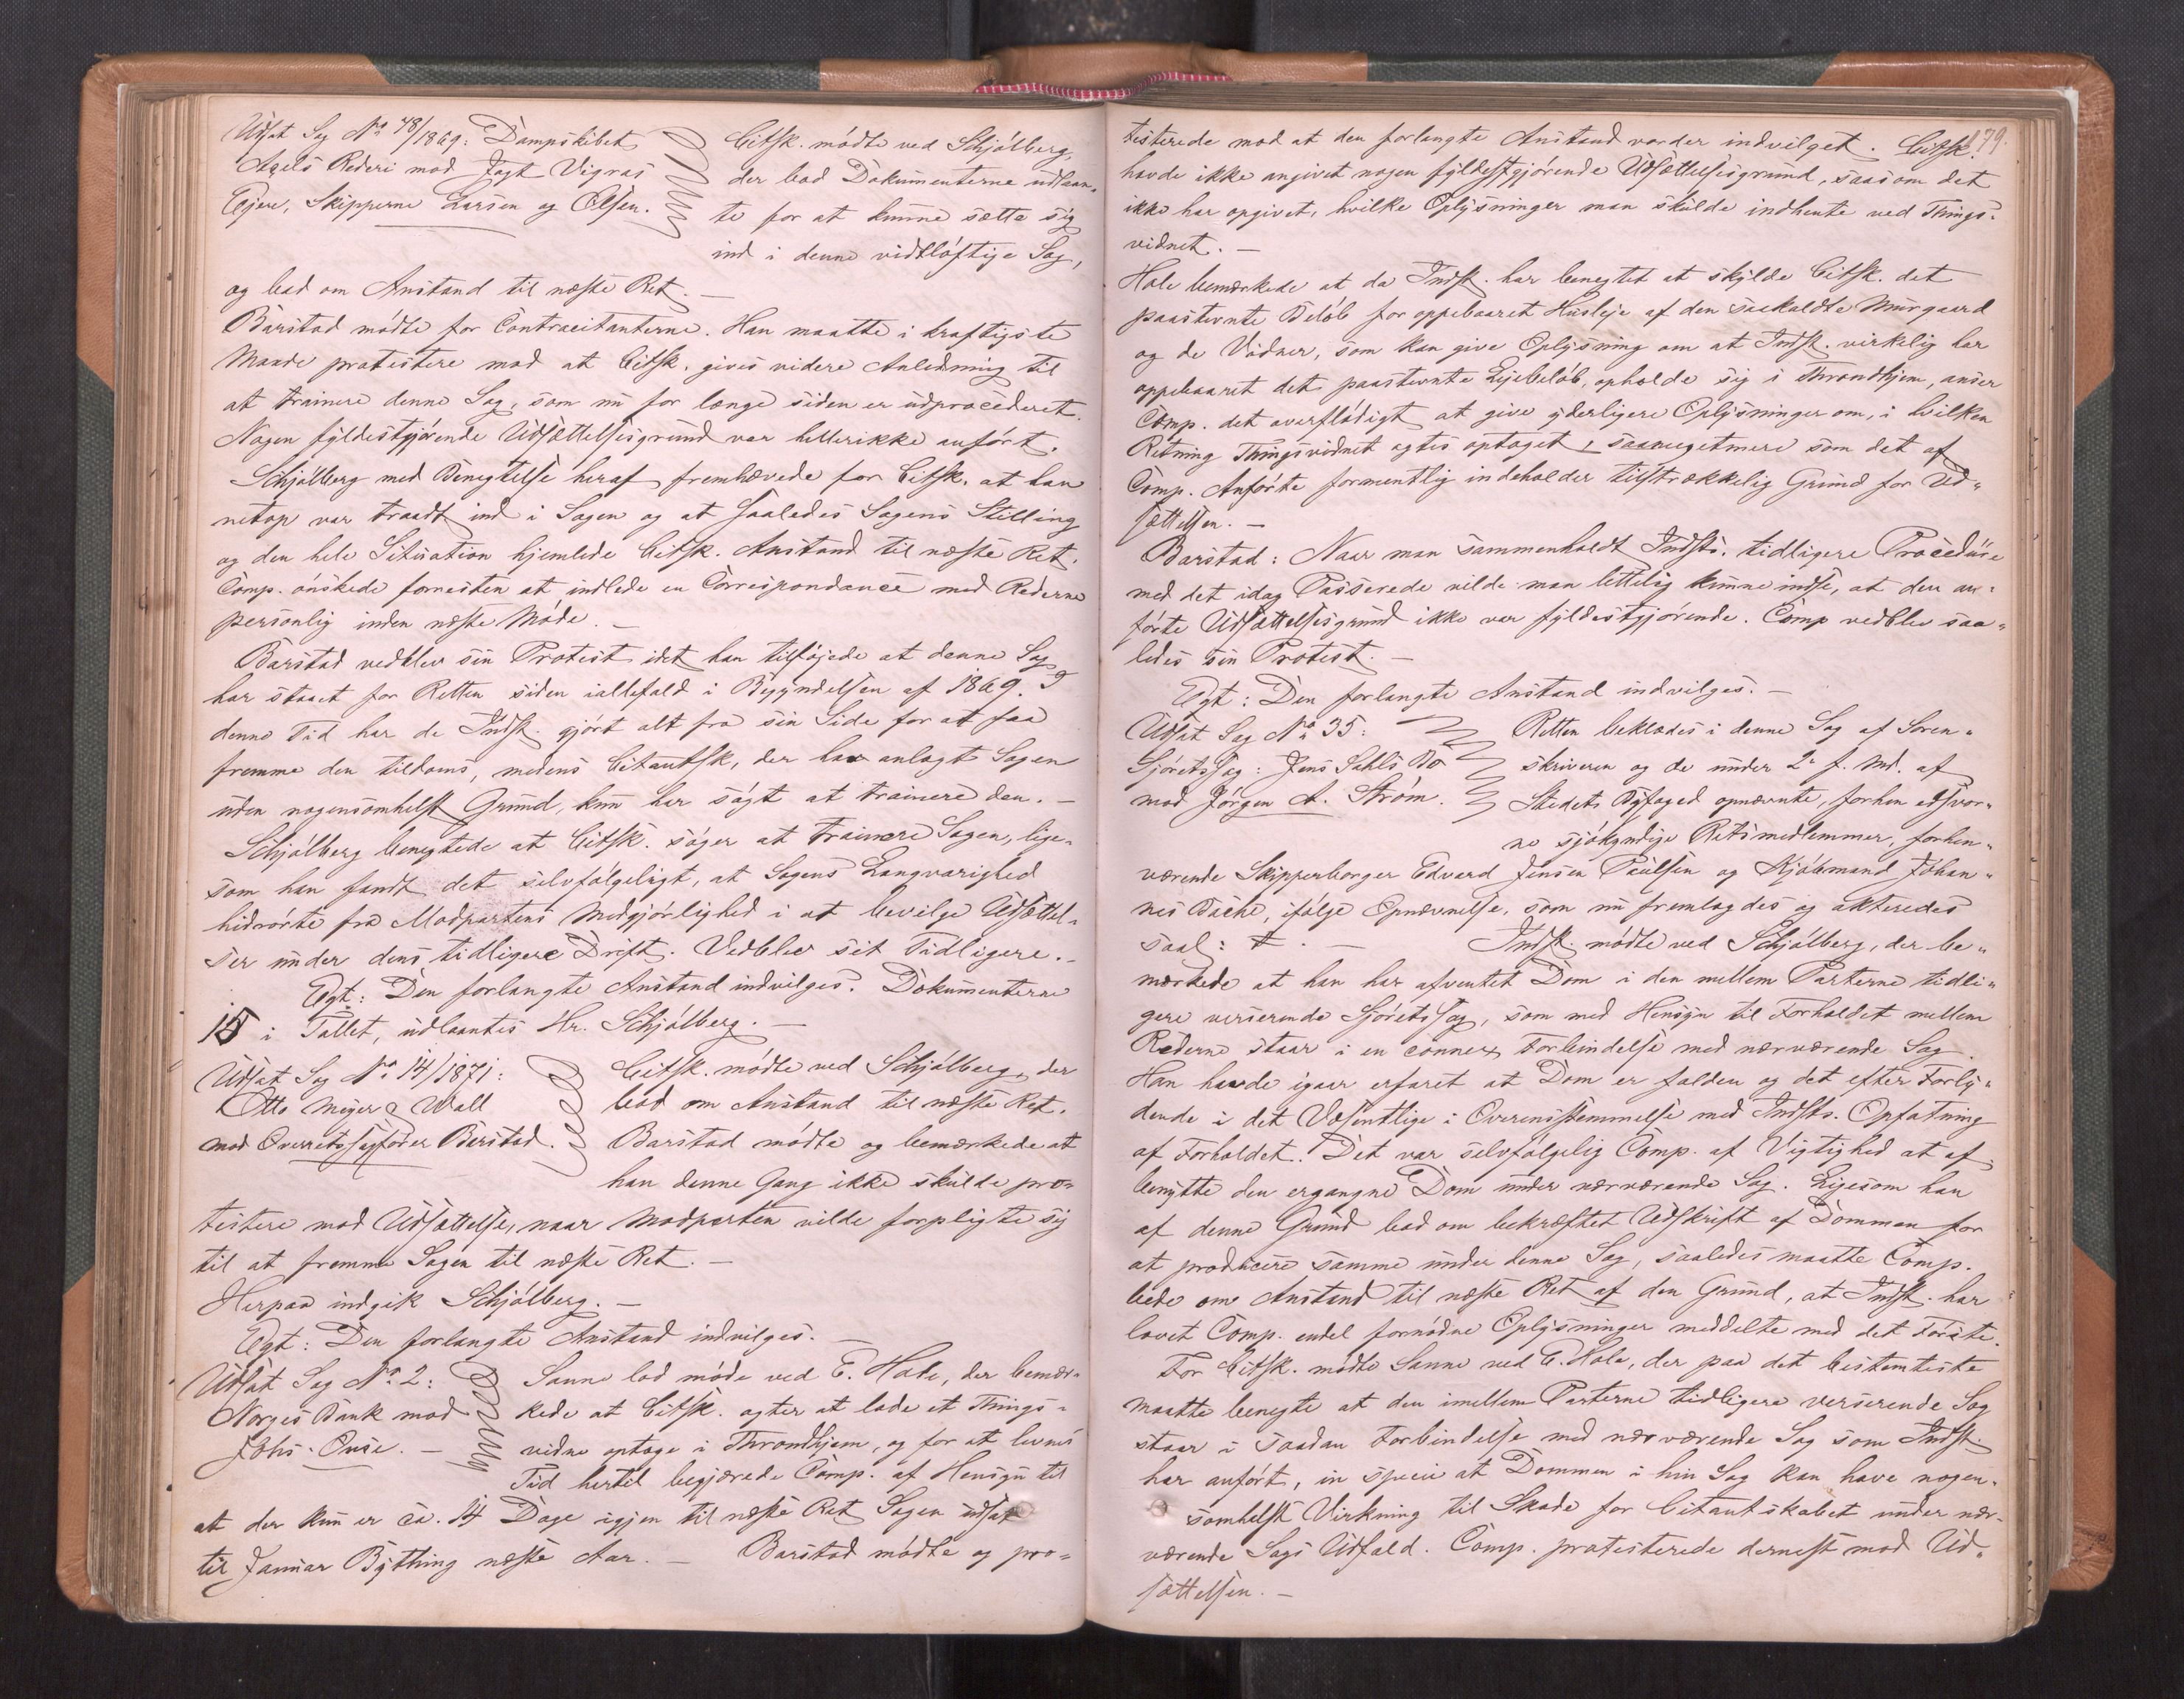 Udsat Sag No 48/1869: Dampskibet
Axels Rederi mod Jagt Vigras
Ejere, Skipperne Larsen og Olsen.
Citsk. mødte ved Schjølberg,
der bad Dokumenterne udlaan-
te for at kunne sætte sig
ind i denne vidtløftige Sag,
og bad om Anstand til næste Ret. —
Barstad mødte for Contracitanterne. Han maatte i kraftigste
Maade protestere mod at Citsk. gives videre Anledning til
at trainere denne Sag, som nu for længe siden er udprocederet.
Nogen fyldestgjørende Udsættelsesgrund var hellerikke anført.
Schjølberg med Benegtelse heraf fremhævede for Citsk. at han
netop var traadt ind i Sagen og at saaledes Sagens Stilling
og den hele Situation hjemlede Citsk. Anstand til næste Ret.
Comp. ønskede forresten at indlede en Correspondance med Rederne
personlig inden næste Møde. —
Barstad vedblev sin Protest idet han tilføjede at denne Sag
har staaet for Retten siden iallefald i Begyndelsen af 1869. I
denne Tid har de Indst. gjort alt fra sin Side for at faa
fremme den tildoms, medens Citantsk, der har anlagt Sagen
uden nogensomhelst Grund, kun har søgt at trainere den. —
Schjølberg benegtede at Citsk. søger at trainere Sagen, lige-
som han fandt det selvfølgeligt, at Sagens Langvarighed
hidrørte fra Modpartens Medgjørlighed i at bevilge Udsættel-
ser under dens tidligere Drift. Vedblev sit Tidligere. —
Egt: Den forlangte Anstand indvilges. Dokumenterne
15 i Tallet, udlaantes Hr. Schjølberg. —
Udsat Sag No 14/1871:
Otto Meyer & Wall
mod Overretssagfører Barstad.
Citsk. mødte ved Schjølberg, der
bad om Anstand til næste Ret.
Barstad mødte og bemærkede at
han denne Gang ikke skulde pro-
testere mod Udsættelse, naar Modparten vilde forpligte sig
til at fremme Sagen til næste Ret. —
Herpaa indgik Schjølberg. —
Egt: Den forlangte Anstand indvilges. —
Udsat Sag No 2:
Norges Bank mod
Johs. Onse. —
Sanne lod møde ved E. Hole, der bemær-
kede at Citsk. agter at lade et Things-
vidne optage i Throndhjem, og for at levnes
Tid hertil begjærede Comp. af Hensyn til
at der kun er ca. 14 Dage igjen til næste Ret Sagen udsat
til Januar Bything næste Aar. — Barstad mødte og pro-
79.
testerede mod at den forlangte Anstand vorder indvilget. Citsk.
havde ikke angivet nogen fyldestgjørende Udsættelsesgrund, saasom det
ikke har opgivet, hvilke Oplysninger man skulde indhente ved Things-
vidnet. —
Hole bemærkede at da Indst. har benegtet at skylde Citsk. det
paastevnte Beløb for oppebaaret Husleje af den saakaldte Murgaard
og de Vidner, som kan give Oplysning om at Indst. virkelig har
oppebaaret det paastevnte Lejebeløb, opholde sig i Throndhjem, anser
Comp. det overflødigt at give yderligere Oplysninger om, i hvilken
Retning Thingsvidnet agtes optaget, saameget mere som det af
Comp. Anførte formentlig indeholder tilstrækkelig Grund for Ud-
sættelsen. —
Barstad: Naar man sammenholdt Indsts. tidligere Procedure
med det idag Passerede vilde man lettelig kunne indse, at den an-
førte Udsættelsesgrund ikke var fyldestgjørende. Comp vedblev saa-
ledes sin Protest. —
Egt: Den forlangte Anstand indvilges. —
Udsat Sag No 35:
Sjøretssag: Jens Sahls Bo
mod Jørgen A. Strøm.
Retten beklædes i denne Sag af Soren-
skriveren og de under 2n f. Md. af
Stedets Byfoged opnævnte, forhen edsvor-
ne sjøkyndige Retsmedlemmer, forhen-
værende Skipperborger Edvard Jensen Paulsen og Kjøbmand Johan-
nes Bache, ifølge Opnævnelse, som nu fremlagdes og akteredes
saal: #. — Indst. mødte ved Schjølberg, der be-
mærkede at han har afventet Dom i den mellem Parterne tidli-
gere verserende Sjøretssag, som med Hensyn til Forholdet mellem
Rederne staar i en connex Forbindelse med nærværende Sag.
Han havde igaar erfaret at Dom er falden og det efter Forly-
dende i det Væsentlige i Overensstemmelse med Indsts. Opfatning
af Forholdet. Det var selvfølgelig Comp. af Vigtighed at af
benytte den ergangne Dom under nærværende Sag. Ligesom han
af denne Grund bad om bekræftet Udskrift af Dommen for
at producere samme under denne Sag, saaledes maatte Comp.
bede om Anstand til næste Ret af den Grund, at Indst. har
lovet Comp. endel fornødne Oplysninger meddelte med det Første.
For Citsk. mødte Sanne ved E. Hole, der paa det bestemteste
maatte benegte at den imellem Parterne tidligere verserende Sag
staar i saadan Forbindelse med nærværende Sag som Indst.
har anført, in specie at Dommen i hin Sag kan have nogen-
somhelst Virkning til Skade for Citantskabet under nær-
værende Sags Udfald. Comp. protesterede dernæst mod Ud-
sættelsen. —